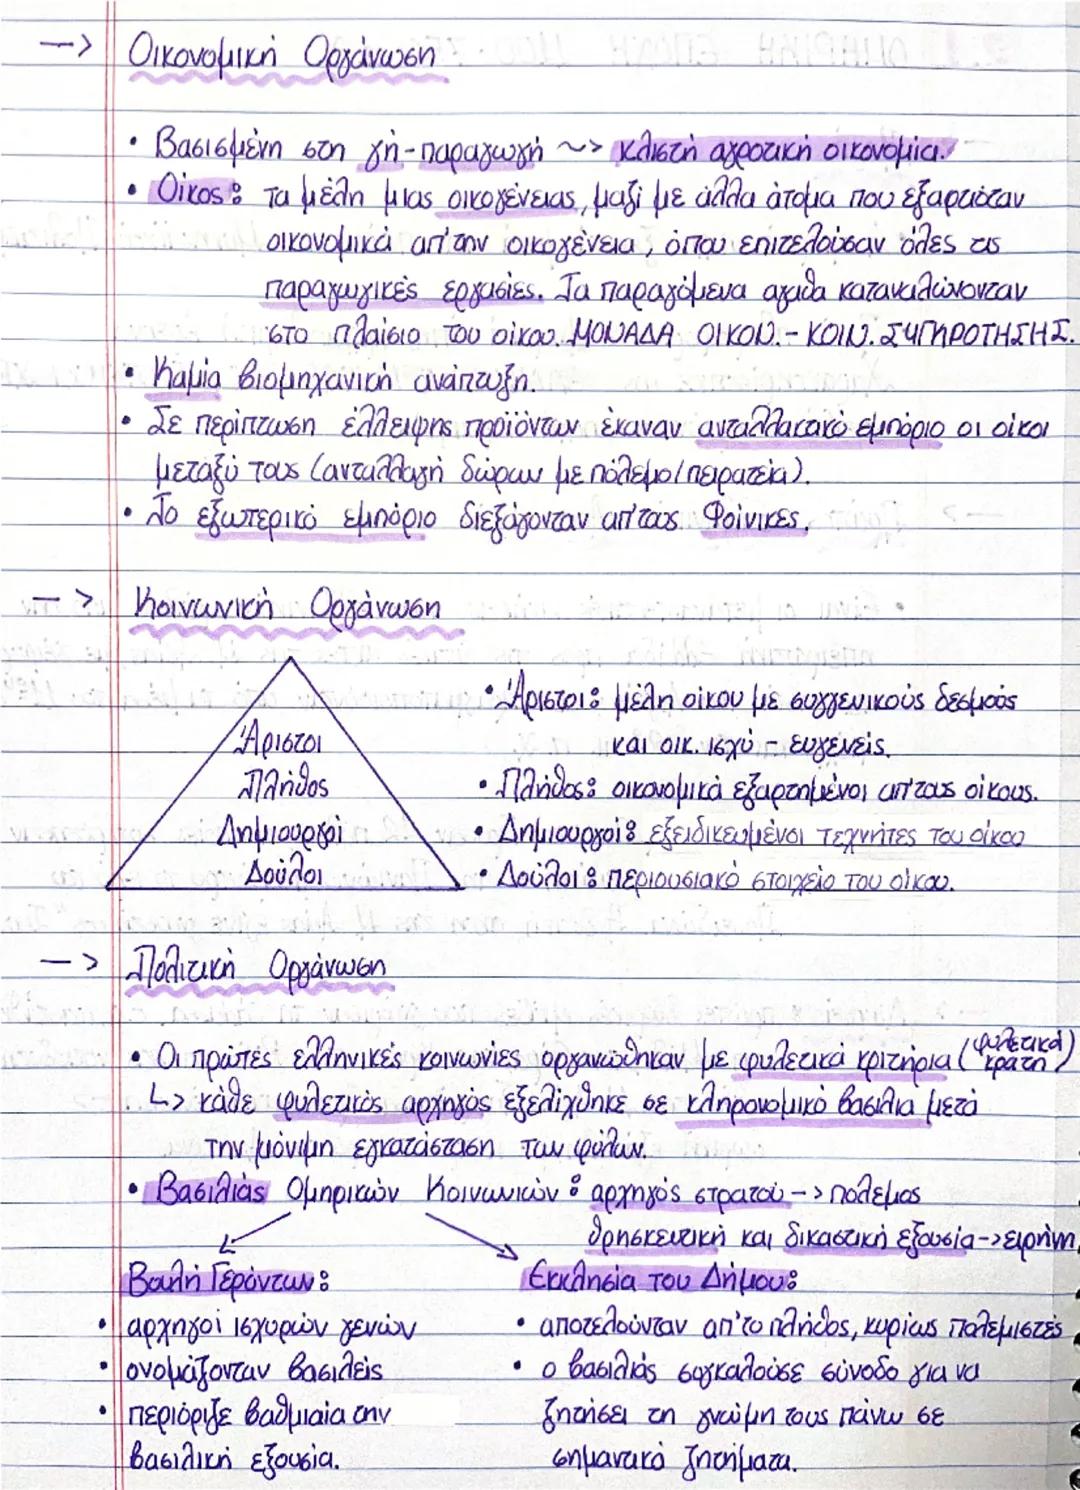 —> Οικονομική Οργάνωση
• Βασισμένη στη γή-παραγωγή ~> κλιστή αγροτική οικονομία.
• Οίκος: τα μέλη μιας οικογένειας, μαζί με άλλα άτομα που εξαρτιόταν
οικονομικά απ'την οικογένεια, όπου επιτελούσαν όλες τις
παραγωγικές εργασίες. Τα παραγόμενα αγαθα καταναλώνονταν
στο πλαίσιο του οίκου. ΜΟΝΑΔΑ ΟΙΚΟΝ.-ΚΟΙΝ. ΣΥΓΚΡΟΤΗΣΗΣ.
• Καμία βιομηχανική ανάπτυξη.
• Σε περίπτωση έλλειψης προϊόντων έκαναν ανταλλακτικό εμπόριο οι οίκοι
μεταξύ τους (ανταλλαγή δώρων με πόλεμο/πειρατεία).
• Το εξωτερικό εμπόριο διεξάγονταν απ'τους Φοίνικες.
—> Κοινωνική Οργάνωση
Άριστοι
Πλήθος
Δημιουργοί
Δούλοι
• Άριστοι: μέλη οίκου με συγγενικούς δεσμούς
και οικ. ισχύ - ευγενείς.
• Πλήθος: οικονομικά εξαρτημένοι απ'τους οίκους.
• Δημιουργοί: εξειδικευμένοι τεχνήτες του οίκου
• Δούλοι: περιουσιακό στοιχείο του οίκου.
—> Πολιτική Οργάνωση
• Οι πρώτες ελληνικές κοινωνίες οργανώθηκαν με φυλετικά κριτήρια (φυλετικά κράτη)
↳ κάθε φυλετικός αρχηγός εξελίχθηκε σε κληρονομικό βασιλιά μετά
την μόνιμη εγκατάσταση των φύλων.
• Βασιλιάς Ομηρικών Κοινωνιών: αρχηγός στρατού -> πόλεμος
θρησκευτική και δικαστική εξουσία -> ειρήνη.
Βουλή Γερόντων:
• αρχηγοί ισχυρών γενών
• ονομάζονταν βασιλείς
• περιόριζε βαθμιαία την
βασιλική εξουσία.
Εκκλησία του Δήμου:
• αποτελούνταν απ'το πλήθος, κυρίως πολεμιστές
• ο βασιλιάς συγκαλούσε σύνοδο για να
ζητήσει τη γνώμη τους πάνω σε
σημαντικά ζητήματα.